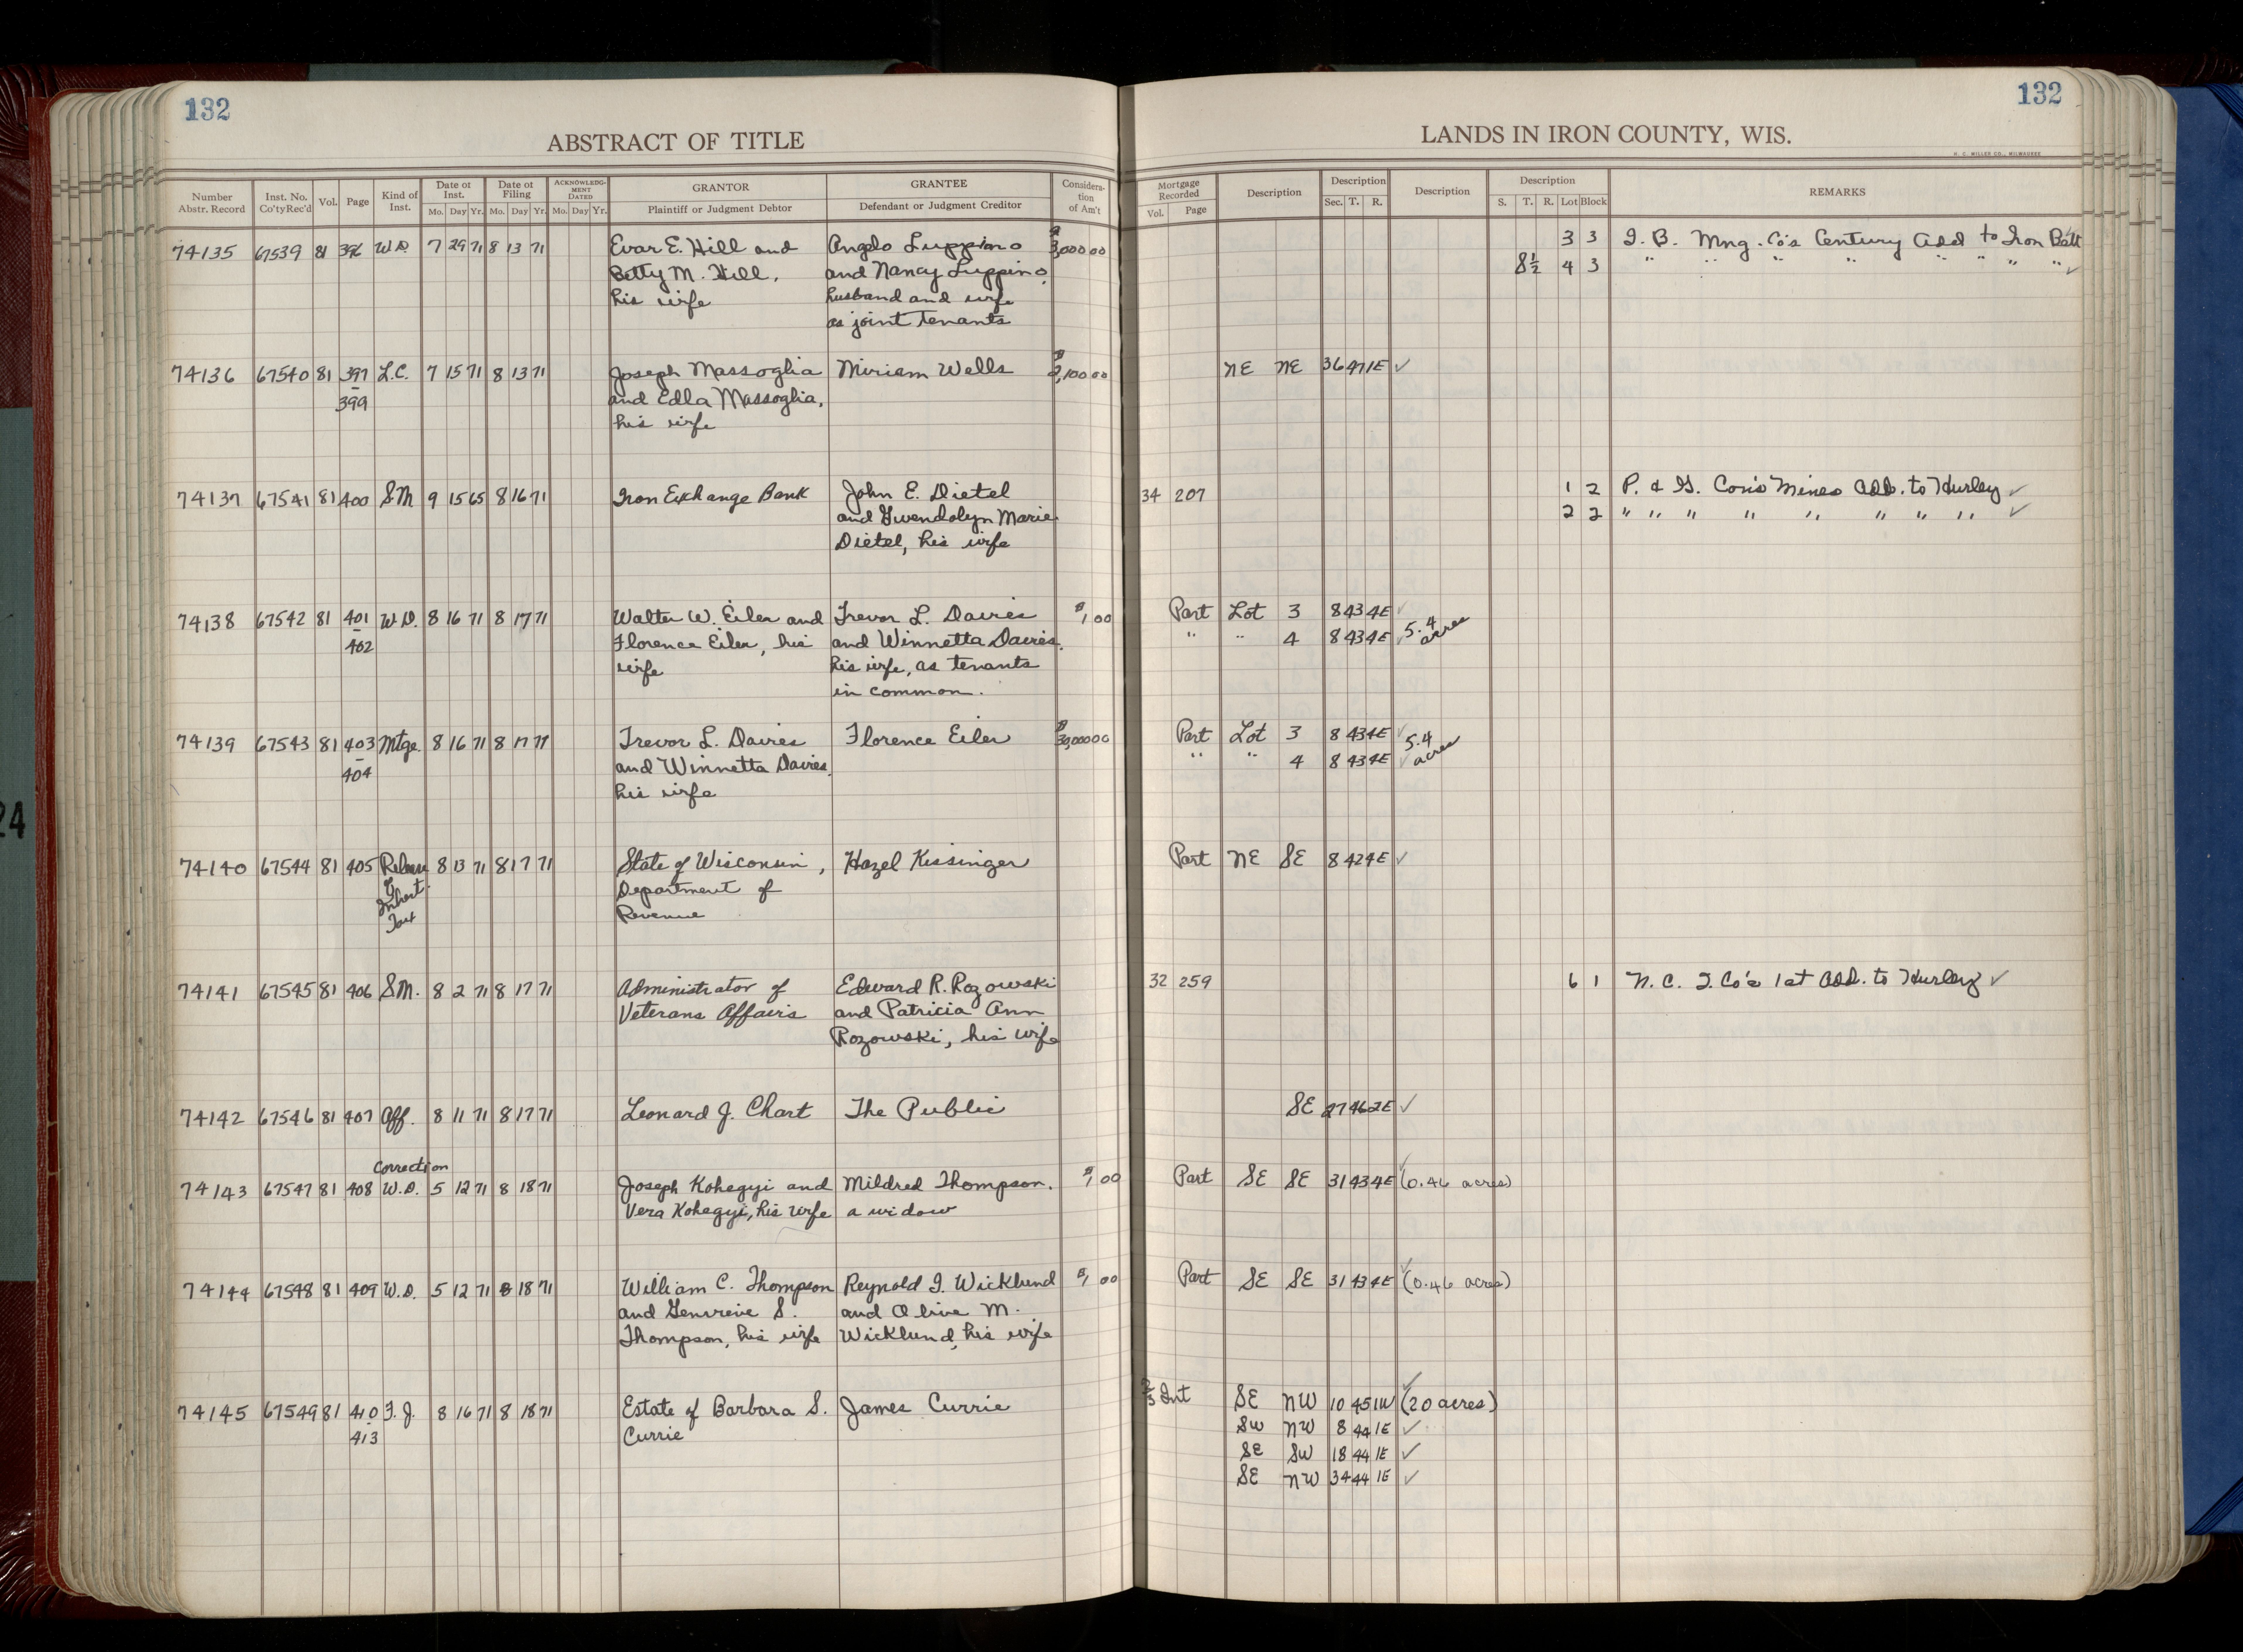 132
132
ABSTRACT OF TITLE
LANDS IN IRON COUNTY, WIS.
H. C. MILLER CO., MILWAUKEE
Number Abstr. Record
Inst. No. Co'ty Rec'd
Vol.
Page
Kind of Inst.
Date of Inst.
Mo. Day Yr.
Date of Filing
Mo. Day Yr.
ACKNOWLEDGMENT DATED
Mo. Day Yr.
GRANTOR
Plaintiff or Judgment Debtor
GRANTEE
Defendant or Judgment Creditor
Consideration of Am't
Mortgage Recorded
Vol. Page
Description
Description
Sec. T. R.
Description
Description
S. T. R. Lot Block
REMARKS
74135 67539 81 396 W.D. 7 29 71 8 13 71 Evar E. Hill and Angelo Luppino $3,000 00 3 3 I. B. Mng. Co's Century Add to Iron Belt
Betty M. Hill, and Nancy Luppino, S½ 4 3 " " " " " " " "
his wife husband and wife
as joint tenants
74136 67540 81 397 L.C. 7 15 71 8 13 71 Joseph Massoglia Miriam Wells $2,100 00 NE NE 36 47 1E ✓
-399 and Edla Massoglia,
his wife
74137 67541 81 400 SM 9 15 65 8 16 71 Iron Exchange Bank John E. Dietel 34 207 1 2 P. & G. Con's Mines Add. to Hurley ✓
and Gwendolyn Marie 2 2 " " " " " " " " ✓
Dietel, his wife
74138 67542 81 401 W.D. 8 16 71 8 17 71 Walter W. Eiler and Trevor L. Davies $1 00 Part Lot 3 8 43 4E ✓
-402 Florence Eiler, his and Winnetta Davies, " " 4 8 43 4E ✓ 5.4 acres
wife his wife, as tenants
in common.
74139 67543 81 403 Mtge. 8 16 71 8 17 71 Trevor L. Davies Florence Eiler $30,000 00 Part Lot 3 8 43 4E ✓
-404 and Winnetta Davies, " " 4 8 43 4E ✓ 5.4 acres
his wife
74140 67544 81 405 Release 8 13 71 8 17 71 State of Wisconsin, Hazel Kissinger Part NE SE 8 42 4E ✓
of Inherit. Department of
Tax Revenue
74141 67545 81 406 SM. 8 2 71 8 17 71 Administrator of Edward R. Rozowski 32 259 6 1 N. C. I. Co's 1st Add. to Hurley ✓
Veterans Affairs and Patricia Ann
Rozowski, his wife
74142 67546 81 407 Aff. 8 11 71 8 17 71 Leonard J. Chart The Public SE 27 46 2E ✓
Correction
74143 67547 81 408 W.D. 5 12 71 8 18 71 Joseph Kohegyi and Mildred Thompson, $1 00 Part SE SE 31 43 4E ✓ (0.46 acres)
Vera Kohegyi, his wife a widow
74144 67548 81 409 W.D. 5 12 71 8 18 71 William C. Thompson Reynold I. Wicklund $1 00 Part SE SE 31 43 4E ✓ (0.46 acres)
and Genvieve S. and Olive M.
Thompson, his wife Wicklund, his wife
74145 67549 81 410 F.J. 8 16 71 8 18 71 Estate of Barbara S. James Currie Int SE NW 10 45 1W ✓ (20 acres)
-413 Currie SW NW 8 44 1E ✓
SE SW 18 44 1E ✓
SE NW 34 44 1E ✓